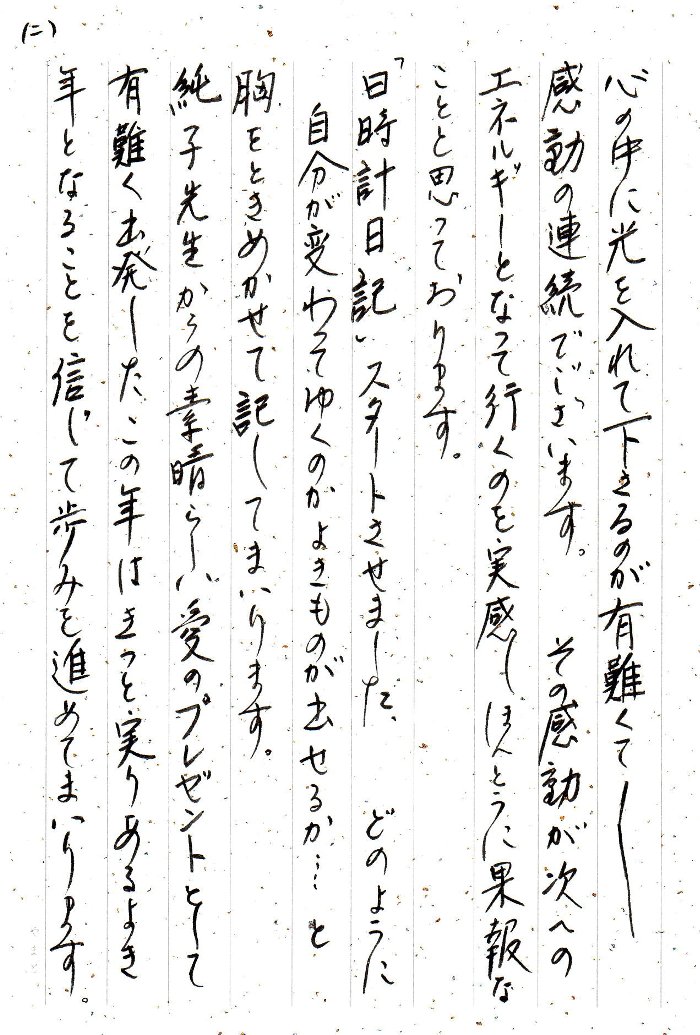 (二)
心の中に光を入れて下さるのが有難くて―
感動の連続でございます。 その感動が次への
エネルギーとなって行くのを実感しほんとうに果報な
ことと思っております。
「日時計日記」スタートさせました、 どのように
自分が変わってゆくのかよきものが出せるか…と
胸をときめかせて記してまいります。
純子先生からの素晴らしい愛のプレゼントとして
有難く出発したこの年はきっと実りあるよき
年となることを信じて歩みを進めてまいります。